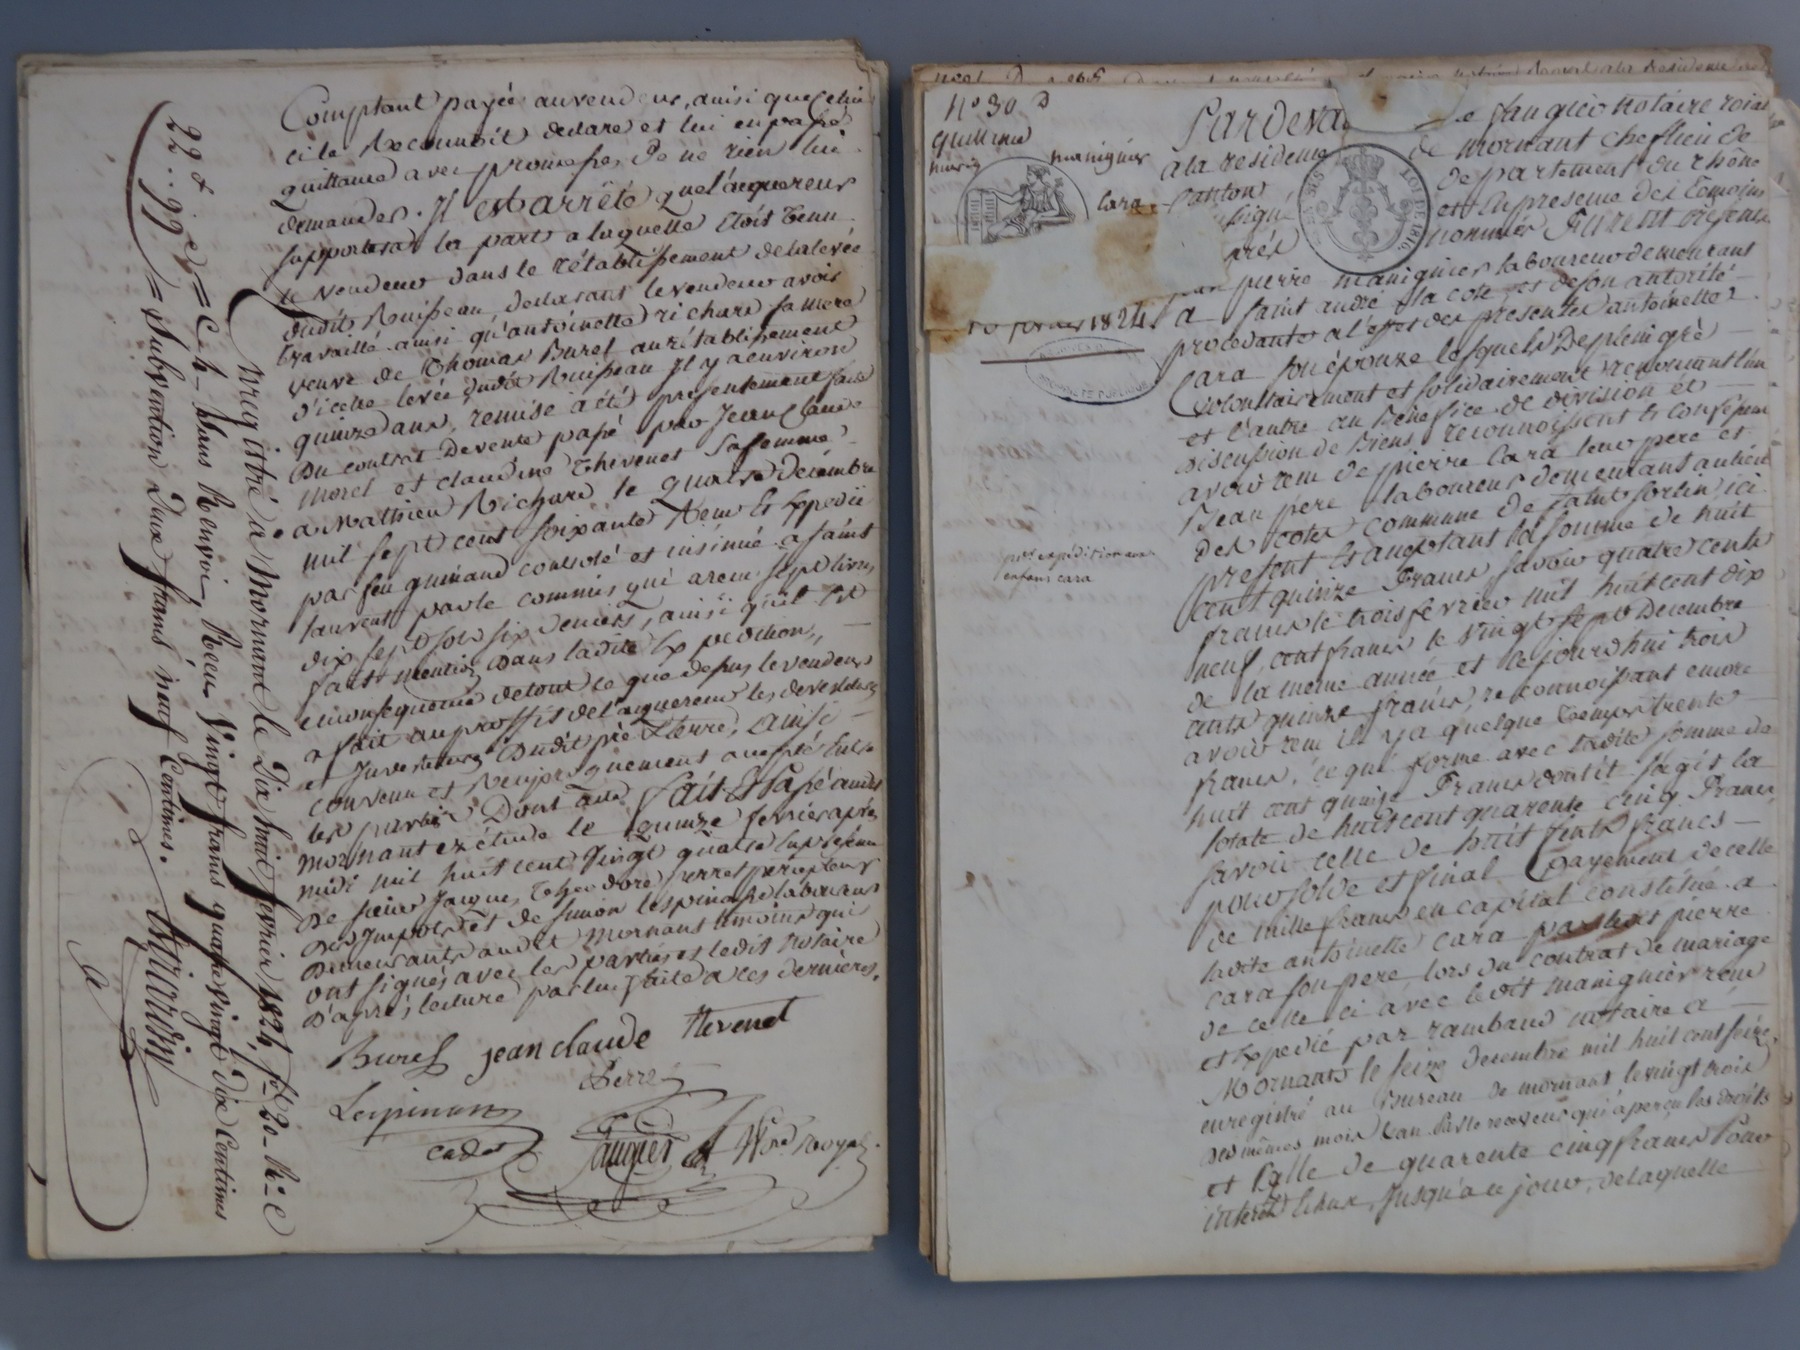 Comptant payée au vendeur, ainsi que celui
ci le Reconnoit declare et lui en passe
quittance avec promesse, De ne rien lui
demander. Il est arrêté que l'acquereur
supportera la part a laquelle etoit tenu
le vendeur dans le rétablissement de la levée
dudit Ruisseau, declarant le vendeur avoir
travaillé ainsi qu'antoinette richard sa mere
veuve de Thomas Burel au rétablissement
d'icelle levée dudit Ruisseau Il y a environ
quinze ans, remise a été presentement faite
Du contrat De vente passé par Jean Claude
morel et claudine Thevenet sa femme
a Mathieu Richard le quatre Decembre
mil sept cent soixante neuf Expedié
par feu guinand controlé et insinué a saint
laurent par le commis qui a recu sept livres
dix sept sols six deniers, ainsi qu'il est
fait mention dans ladite Expedition,
en consequence de tout ce que dessus le vendeur
a fait au proffit de l'acquereur les devestitures
et Investitures Dudit pré et terre, ainsi
convenu et Reciproquement accepté entre
les parties Dont acte fait et passé audit
mornant en étude le quinze fevrier après
midi mil huit cent vingt quatre En présence
De sieur Jacque, Theodore perret percepteur
Des Impots et de simon lespinasse laboureur
Demeurants audit Mornant temoins qui
ont signés avec les parties et ledit notaire
D'après lecture par lui faite a ces dernieres.
Burel jean claude thevenet
Perret
Lespinass
cadet
faugier Nre royal
Enregistré a Mornant le Dix huit fevrier 1824, fo 20 Ro C
Cet Sans Renvoi, Recu Vingt francs quatre Vingt Dix Centimes
Subvention Deux francs neuf Centimes.
22 99
No 30 D
quittance
mariez manignier
Cara
15 fevrier 1824.
pre expedition aux
enfans cara
Pardeva e faugier Notaire roial
a la residence de mornant cheflieu de
Canton departement du rhône
signé et En presence des temoins
après nommés Furent présents
pierre manignier laboureur demeurant
a saint andré la cote, et de son autorité
procedante a l'effet des presentes antoinette
Cara son épouze lesquels De plein gré
volontairement et solidairement renoncant l'un
et l'autre au Benefice de division et
discussion de Biens reconnoissent et confessent
avoir recu de pierre Cara leur pere et
Beau pere laboureur demeurant au lieu
des cotes commune de saint sorlin, ici
present et acceptant la somme de huit
cent quinze Francs, savoir quatre cents
francs le trois fevrier mil huit cent dix
neuf, cent francs le vingt sept Decembre
de la meme année et le jourd'hui trois
cents quinze francs, reconnoissant encore
avoir recu il y a quelque temps trente
francs, ce qui forme avec ladite somme de
huit cent quinze Francs dont il s'agit la
totale de huit cent quarente cinq Francs
savoir celle de huit cents francs
pour solde et final payement de celle
de mille francs en capital constitué a
ladite antoinette Cara pierre
cara son pere, lors du contrat de mariage
de celle ci avec ledit manignier recu
et Expedié par rambaud notaire a
Mornant, le seize decembre mil huit cent seize,
enregistré au Bureau de mornant le vingt trois
des mêmes mois receveur qui a percu les droits
et Celle de quarente cinq francs pour
interets Echus, Jusqu'a ce jour, de laquelle